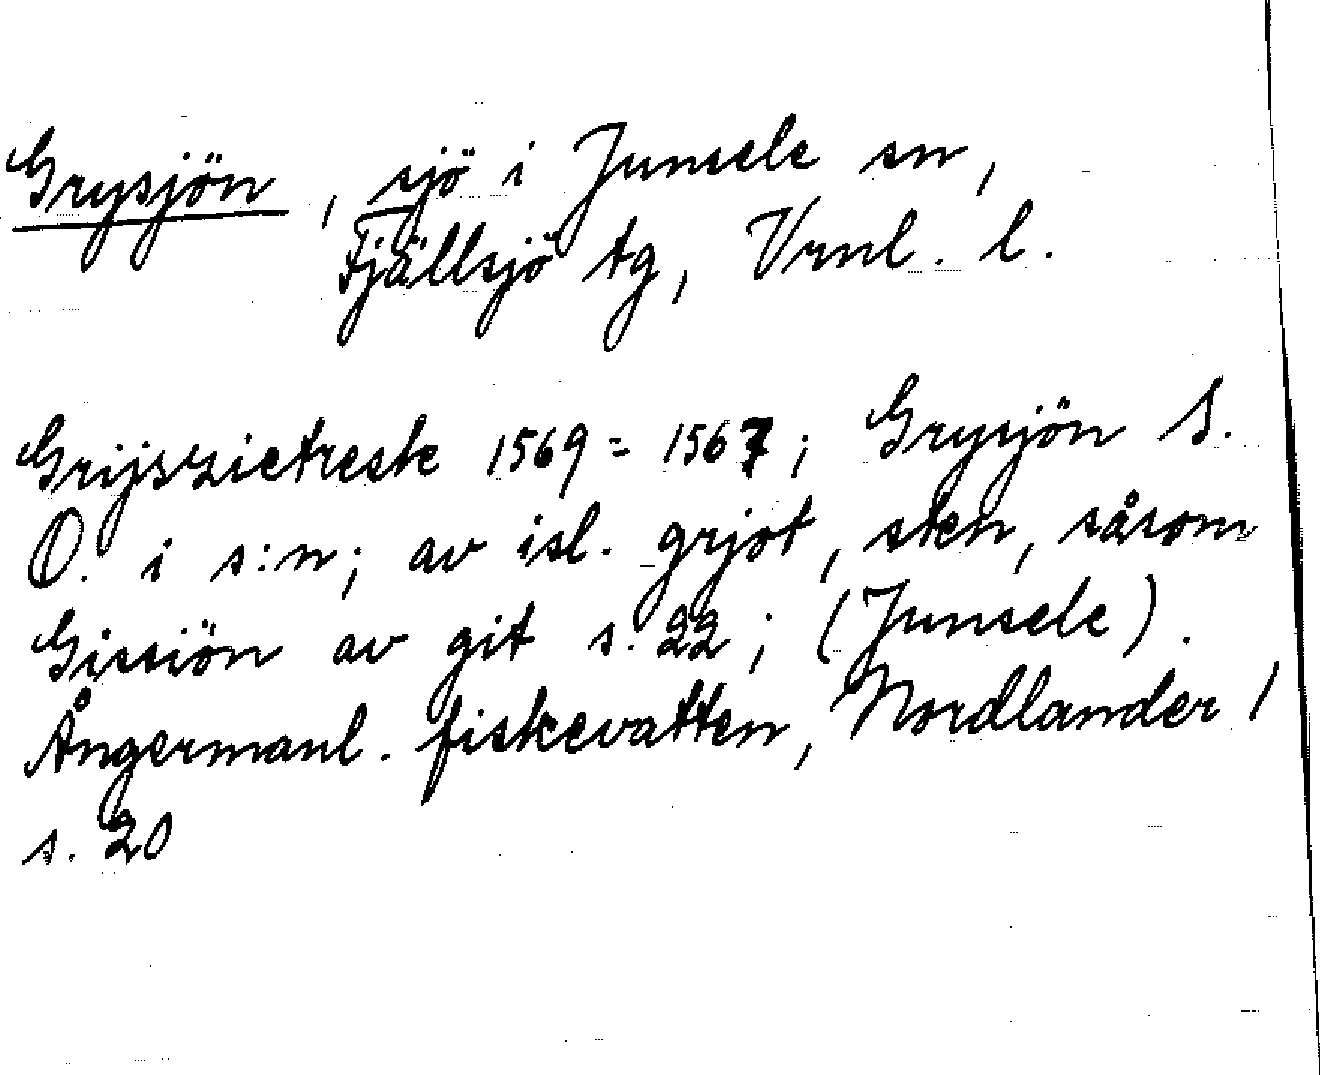 Grysjön, sjö i Junsele sn,
Fjällsjö tg, Vrnl. l.
Grijszietreste 1569 = 1567; Grysjön S.
O. i s:n; av isl. grjot, sten, såsom
Gissiön av git s. 22; (Junsele).
Ångermanl. fiskevatten, Nordlander 1
s. 20